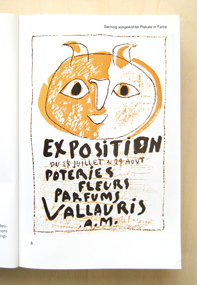 Sechzig ausgewählte Plakate in Farbe
EXPOSITION
DU 25 JUILLET à 29 AOUT
POTERIES
FLEURS
PARFUMS
VALLAURIS
.A.M.